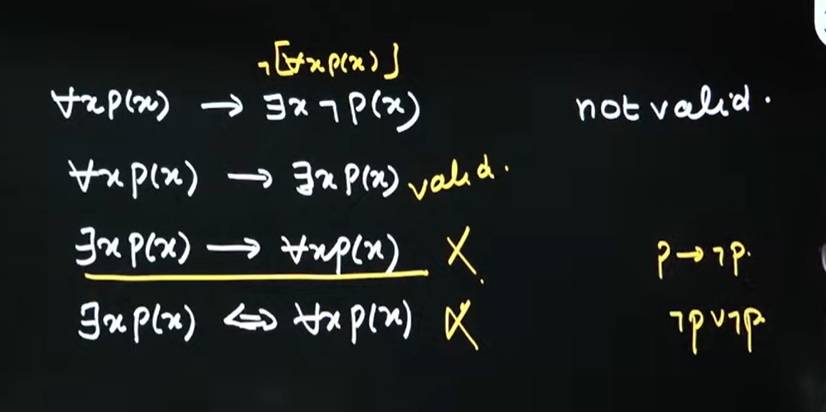 ¬[∀xP(x)]
∀xP(x) → ∃x¬P(x) not valid.
∀xP(x) → ∃xP(x) valid.
∃xP(x) → ∀xP(x) X p→¬p.
∃xP(x) ⇔ ∀xP(x) X ¬p∨¬p